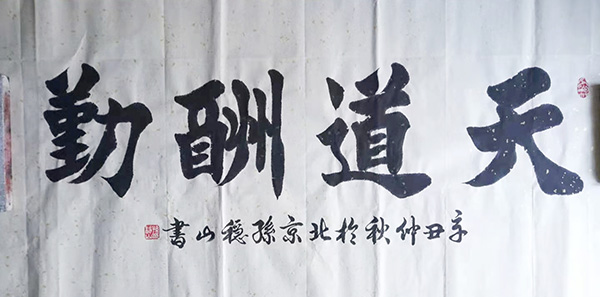 天道酬勤
辛丑仲秋於北京孫穩山書